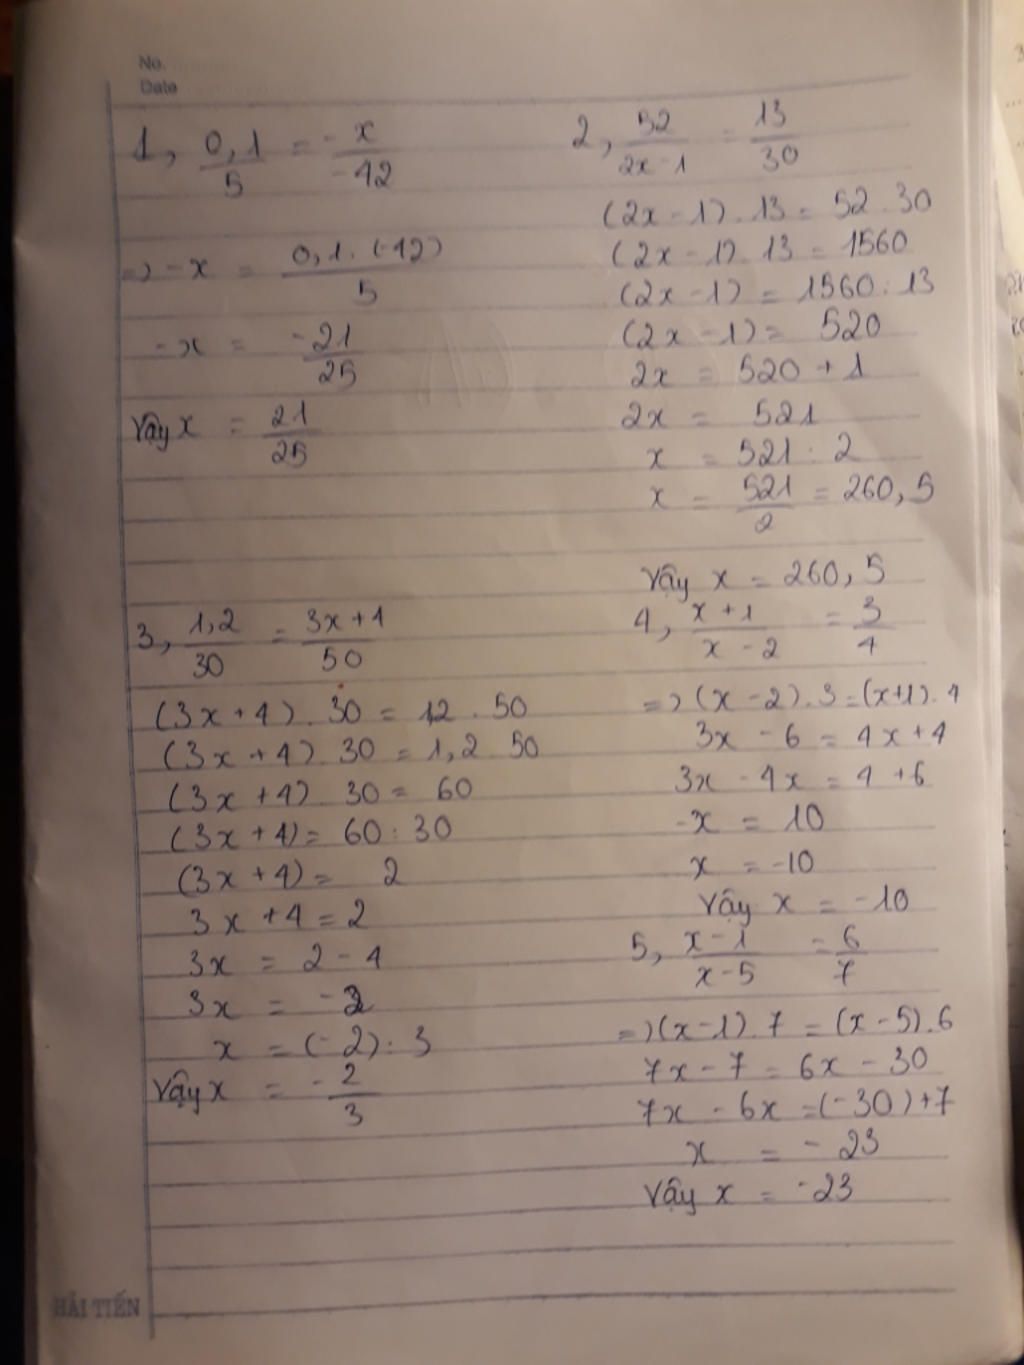 No.
Date
1, 0,1/5 = -x/-42
=> -x = 0,1.(-42)/5
-x = -21/25
Vậy x = 21/25
2, 52/2x-1 = 13/30
(2x-1).13 = 52.30
(2x-1).13 = 1560
(2x-1) = 1560:13
(2x-1) = 520
2x = 520+1
2x = 521
x = 521:2
x = 521/2 = 260,5
Vậy x = 260,5
3, 1,2/30 = 3x+4/50
(3x+4).30 = 1,2.50
(3x+4).30 = 1,2.50
(3x+4).30 = 60
(3x+4) = 60:30
(3x+4) = 2
3x+4 = 2
3x = 2-4
3x = -2
x = (-2):3
Vậy x = -2/3
4, x+1/x-2 = 3/4
=> (x-2).3 = (x+1).4
3x-6 = 4x+4
3x-4x = 4+6
-x = 10
x = -10
Vậy x = -10
5, x-1/x-5 = 6/7
=> (x-1).7 = (x-5).6
7x-7 = 6x-30
7x-6x = (-30)+7
x = -23
Vậy x = -23
HẢI TIẾN